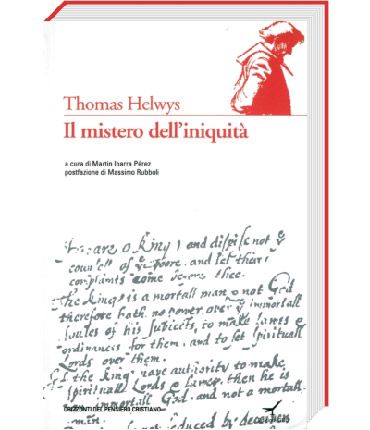 Thomas Helwys
Il mistero dell'iniquità
a cura di Martin Ibarra Pérez
postfazione di Massimo Rubboli
Heare o King, and dispise not ye
counsell of ye poore, and let their
complaints come before thee.
The King is a mortall man & not God
therefore hath no power over ye immortall
soules of his subjects, to make lawes &
ordinances for them, and to set spirituall
Lords over them.
If the king have authority to make
spirituall Lords & lawes, then he is
an immortall God and not a mortall
man.
seduced by deceivers
ORIZZONTI DEL PENSIERO CRISTIANO